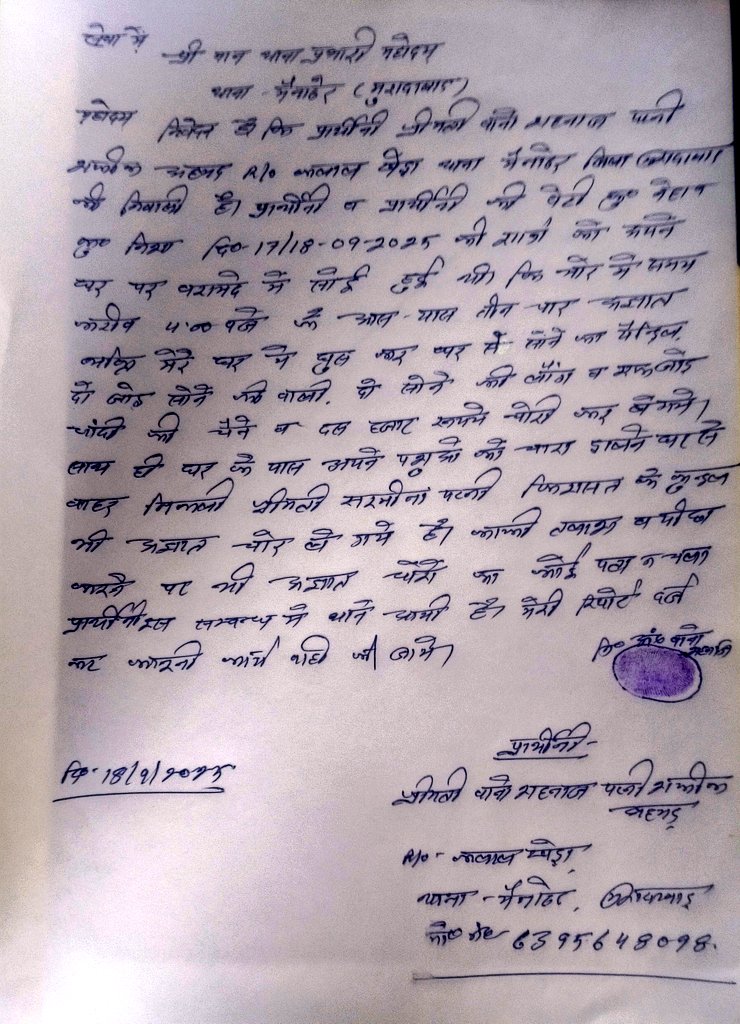 सेवा में
श्री मान थाना प्रभारी महोदय
थाना - मैनाठेर (मुरादाबाद)
महोदय निवेदन है कि प्रार्थीनी श्रीमती बानो शहनाज पत्नी
शफीक अहमद R/o जलाल खेड़ा थाना मैनाठेर जिला मुरादाबाद
की निवासी है। प्रार्थीनी व प्रार्थीनी की बेटी कु०
कु० दि० 17/18-09-2025 की रात्री को अपने
घर पर बरामदे में सोई हुई थी। कि भोर में समय
करीब 4:00 बजे के आस-पास तीन चार अज्ञात
व्यक्ति मेरे घर में घुस कर घर से सोने का पैन्डिल,
दो जोड़ सोने की बाली, दो सोने की लौंग व एक जोड़
चांदी की चैने व दस हजार रूपये चोरी कर ले गये।
साथ ही घर के पास अपने पशुओ को चारा डालने घर से
बाहर निकली श्रीमती पत्नी के कुन्डल
भी अज्ञात चोर ले गये है। काफी तलाश व पीछा
करने पर भी अज्ञात चोरों का कोई पता न चला
प्रार्थीनी इस सम्बन्ध में थाने आयी है। मेरी रिपोर्ट दर्ज
कर कानूनी कार्यवाही की जाये।
नि० अं० बानो
शहनाज
प्रार्थीनी-
दि०- 18/9/2025
श्रीमती बानो शहनाज पत्नी शफीक
अहमद
R/o- जलाल खेड़ा
थाना - मैनाठेर, मुरादाबाद
मो० नं० 6395648098.